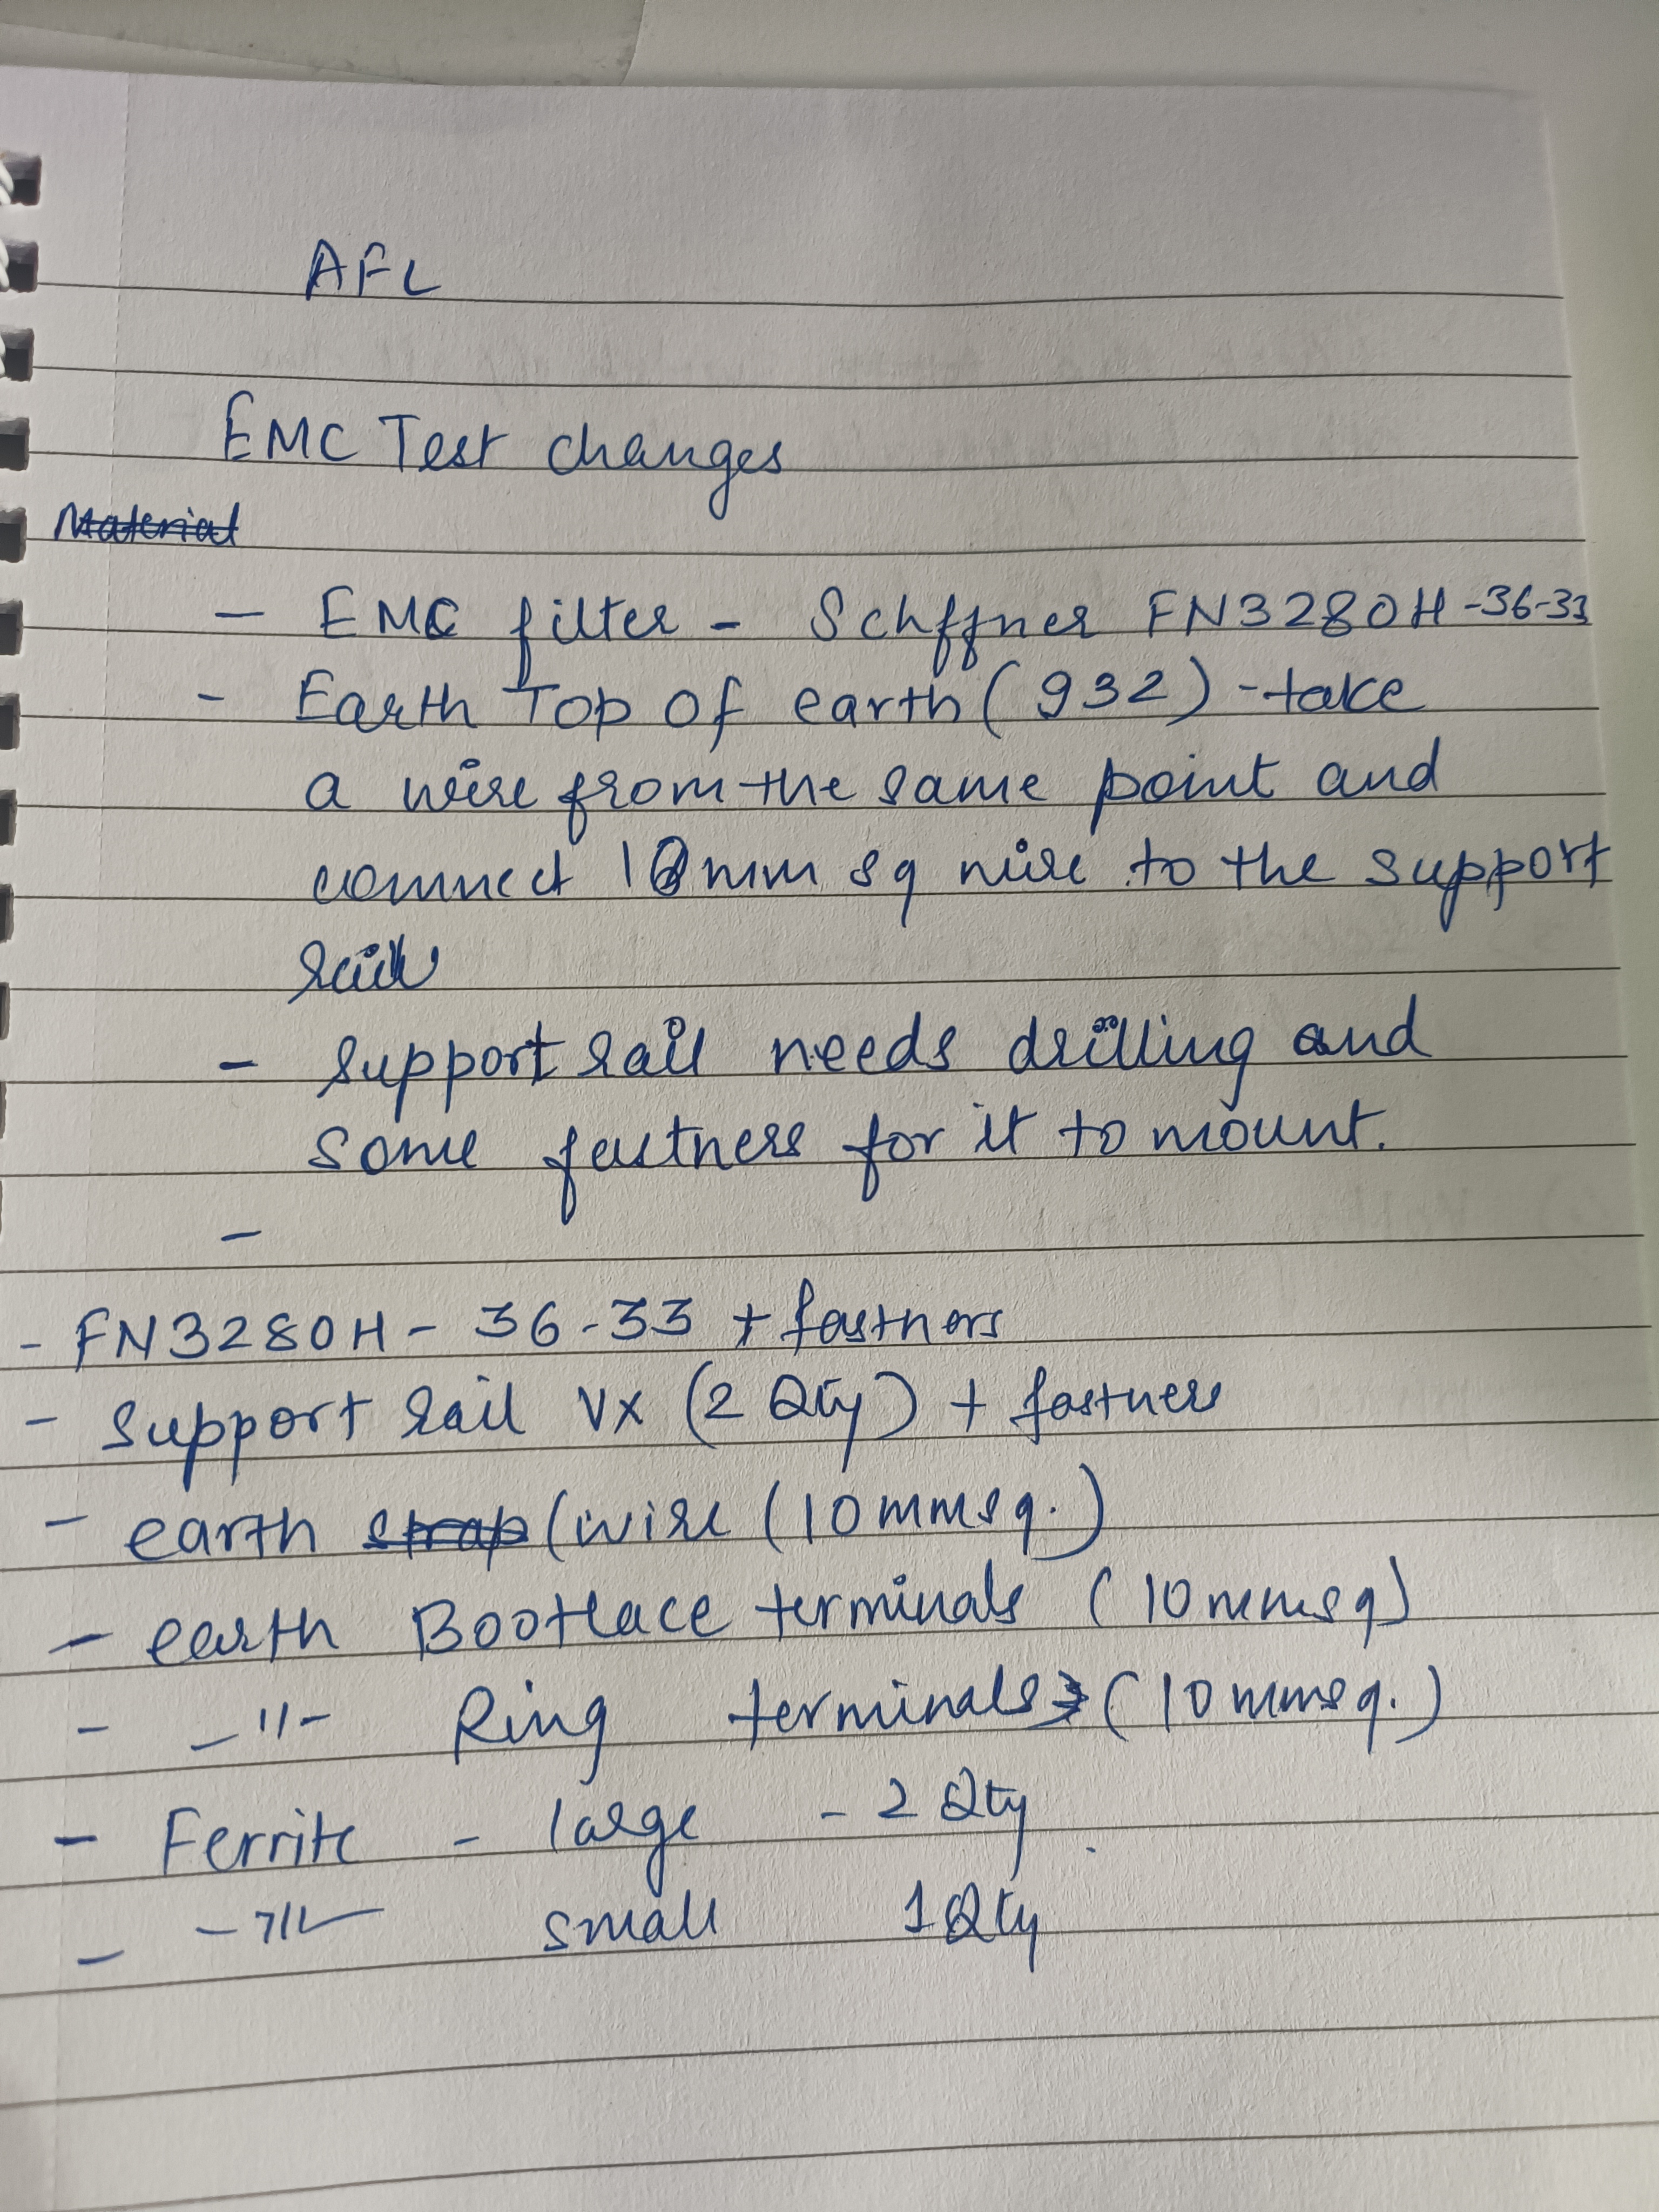 AFL
EMC Test changes
Material
- EMC filter - Schffner FN3280H-36-33
- Earth Top of earth (932) - take
a wire from the same point and
connect 10mm sq wire to the support
rail
- Support rail needs drilling and
some fastness for it to mount.
-
- FN3280H - 36-33 + fastnors
- Support rail VX (2 Qty) + fastners
- earth strap (wire (10mmsq.)
- earth Bootlace terminals (10mmsq)
- -"- Ring terminals (10mmsq.)
- Ferrite - large - 2 Qty
- -"- small 1 Qty